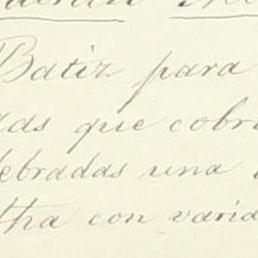 Batiz para
das que cobr
lebradas una
tha con varia